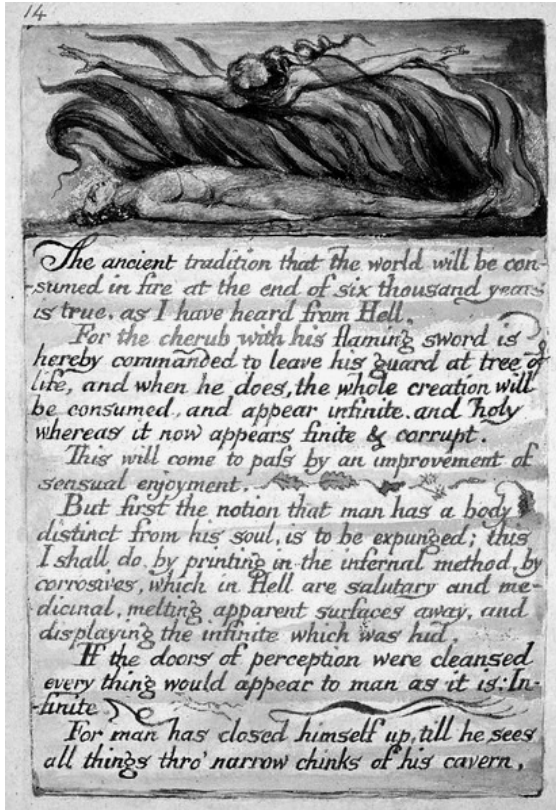 14
The ancient tradition that the world will be con-
-sumed in fire at the end of six thousand years
is true, as I have heard from Hell.
For the cherub with his flaming sword is
hereby commanded to leave his guard at tree of
life, and when he does, the whole creation will
be consumed, and appear infinite. and holy
whereas it now appears finite & corrupt.
This will come to paſs by an improvement of
sensual enjoyment.
But first the notion that man has a body
distinct from his soul, is to be expunged; this
I shall do, by printing in the infernal method, by
corrosives, which in Hell are salutary and me-
dicinal, melting apparent surfaces away, and
displaying the infinite which was hid.
If the doors of perception were cleansed
every thing would appear to man as it is: In-
-finite
For man has closed himself up, till he sees
all things thro' narrow chinks of his cavern,